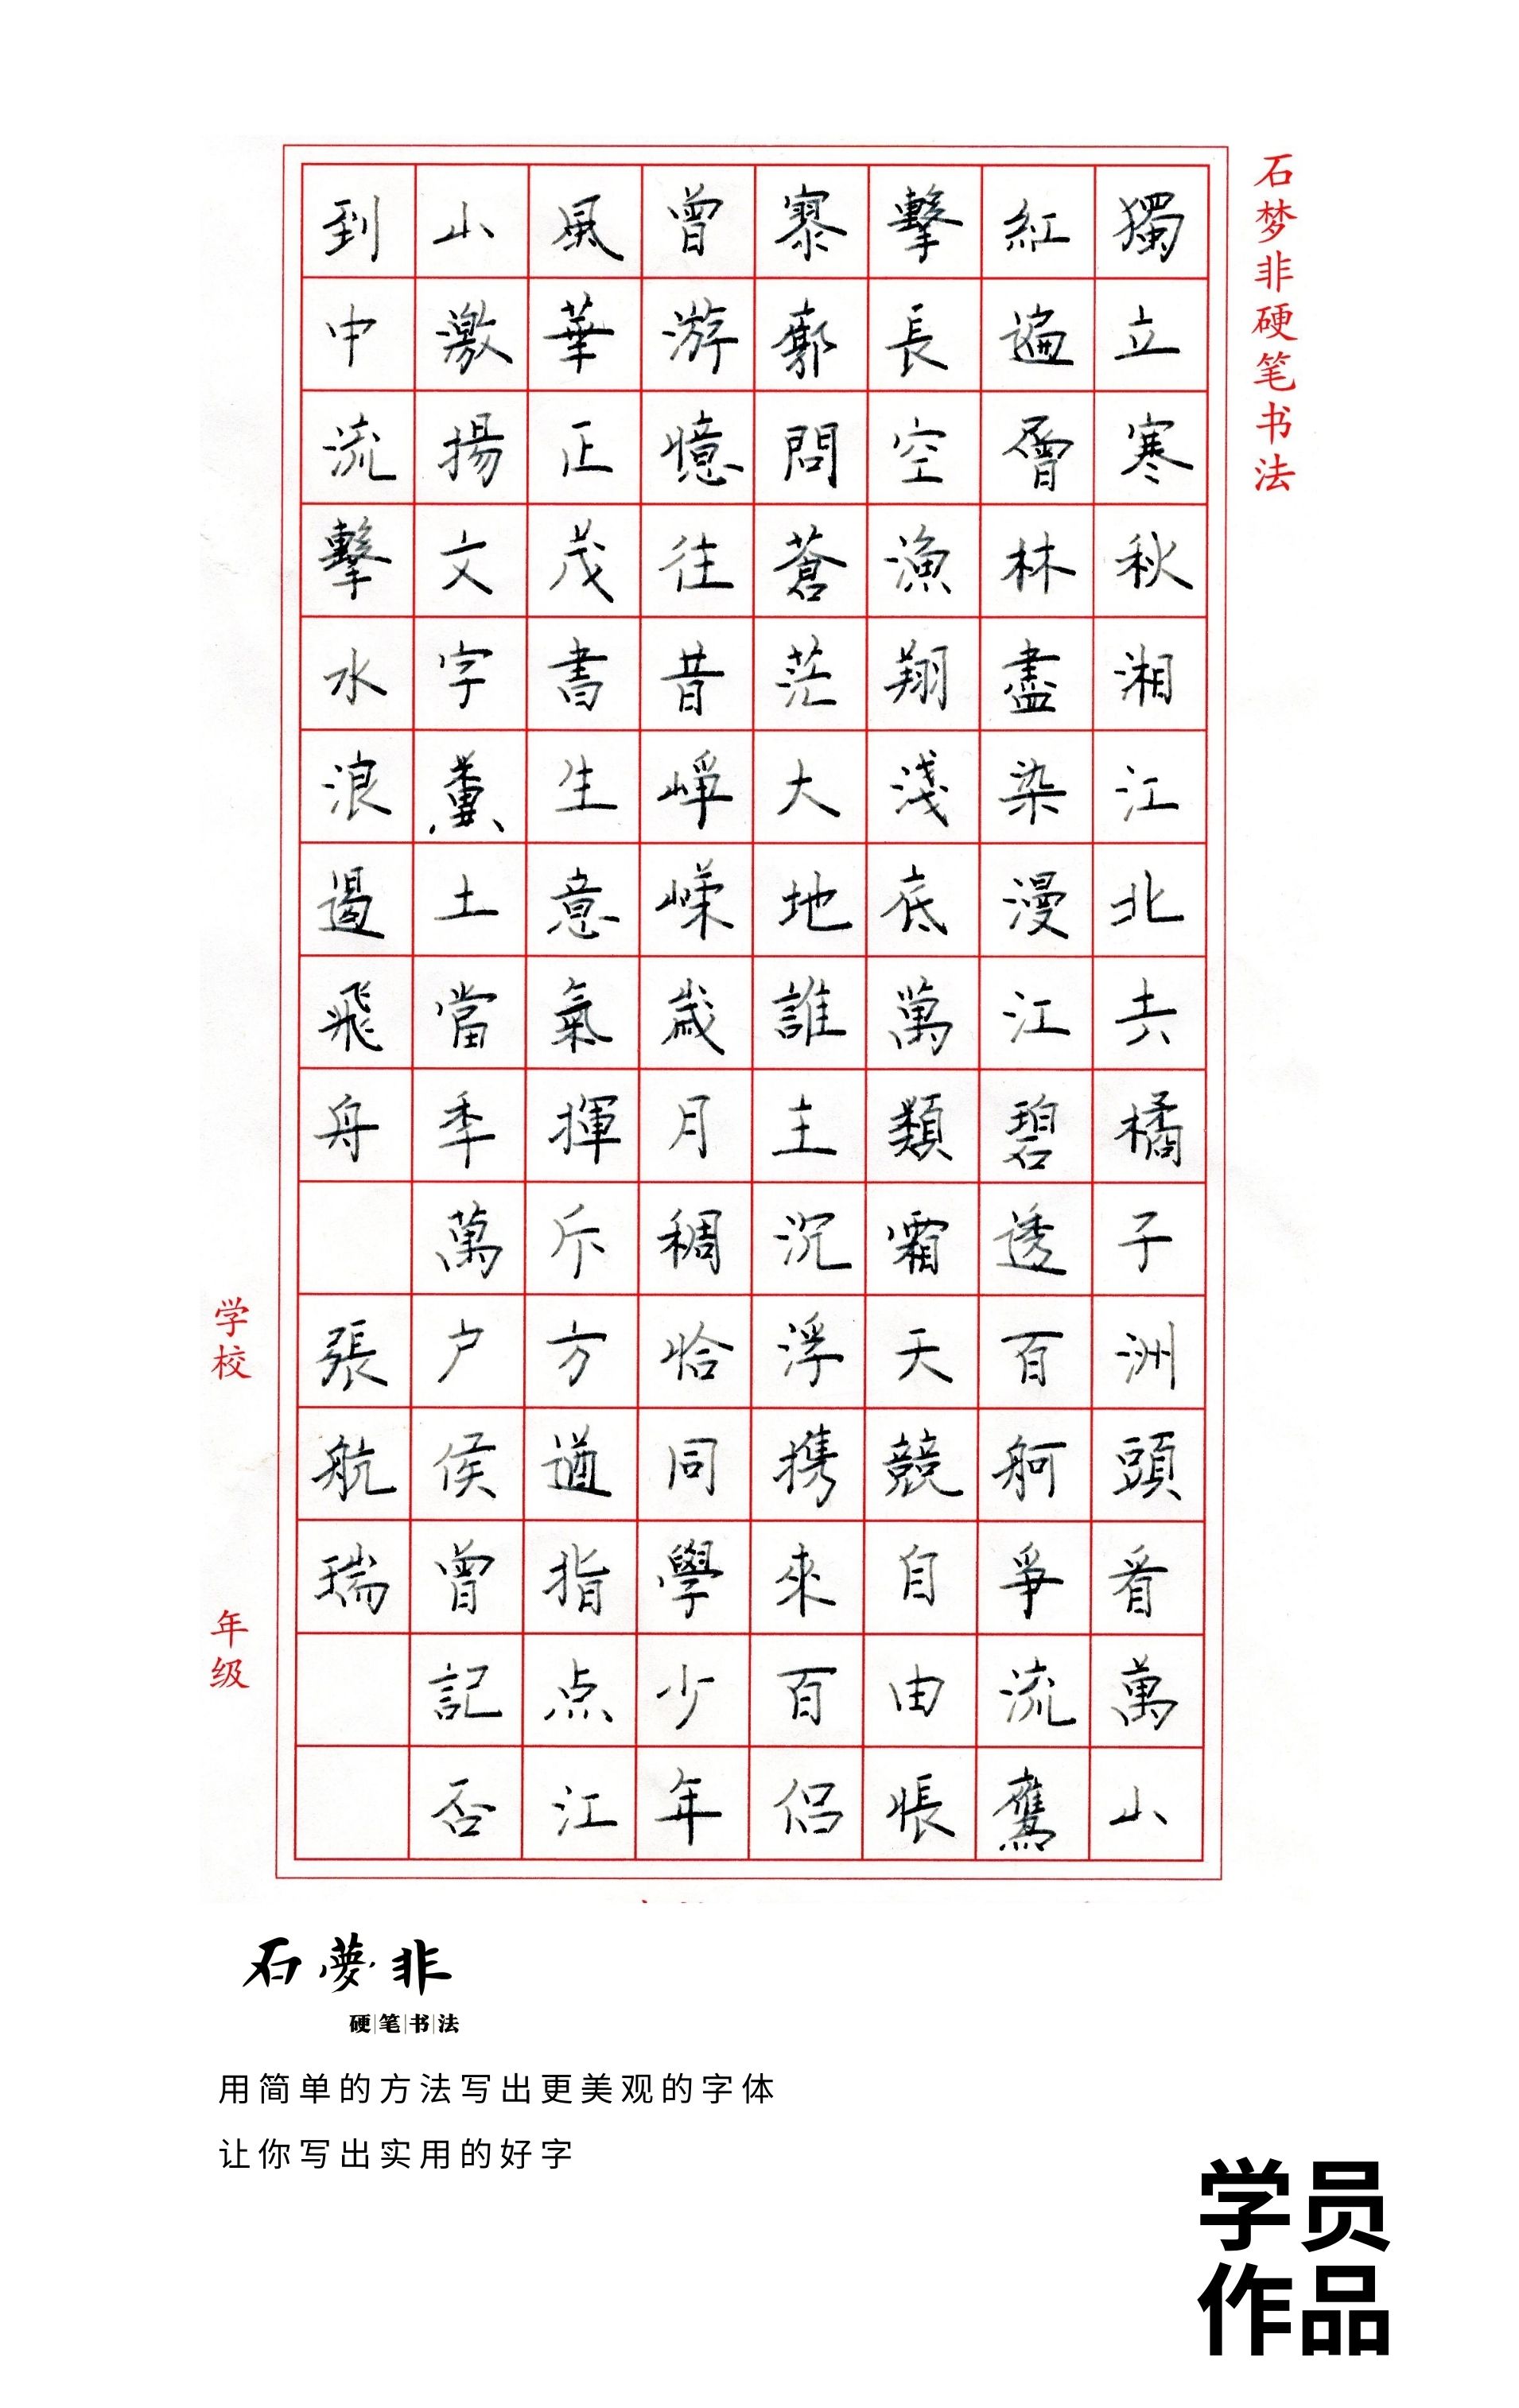 石梦非硬笔书法
獨立寒秋湘江北去橘子洲頭看萬山
紅遍層林盡染漫江碧透百舸爭流鷹
擊長空漁翔淺底萬類霜天競自由悵
寥廓問蒼茫大地誰主沉浮携來百侣
曾游憶往昔崢嶸歲月稠恰同學少年
風華正茂書生意氣揮斥方遒指点江
山激揚文字糞土當年萬户侯曾記否
到中流擊水浪遏飛舟 張航瑞
学校
年级
石夢非
硬笔书法
用简单的方法写出更美观的字体
让你写出实用的好字
学员
作品